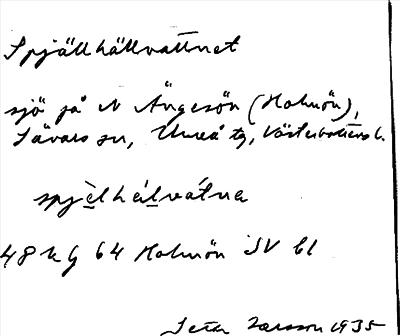 Spjällhällvattnet
sjö på N Ängesön (Holmön),
Sävars sn, Umeå tg, Västerbottens l.
spjèlhálvátnα
48 k G 64 Holmön SV bl
Seth Larsson 1935